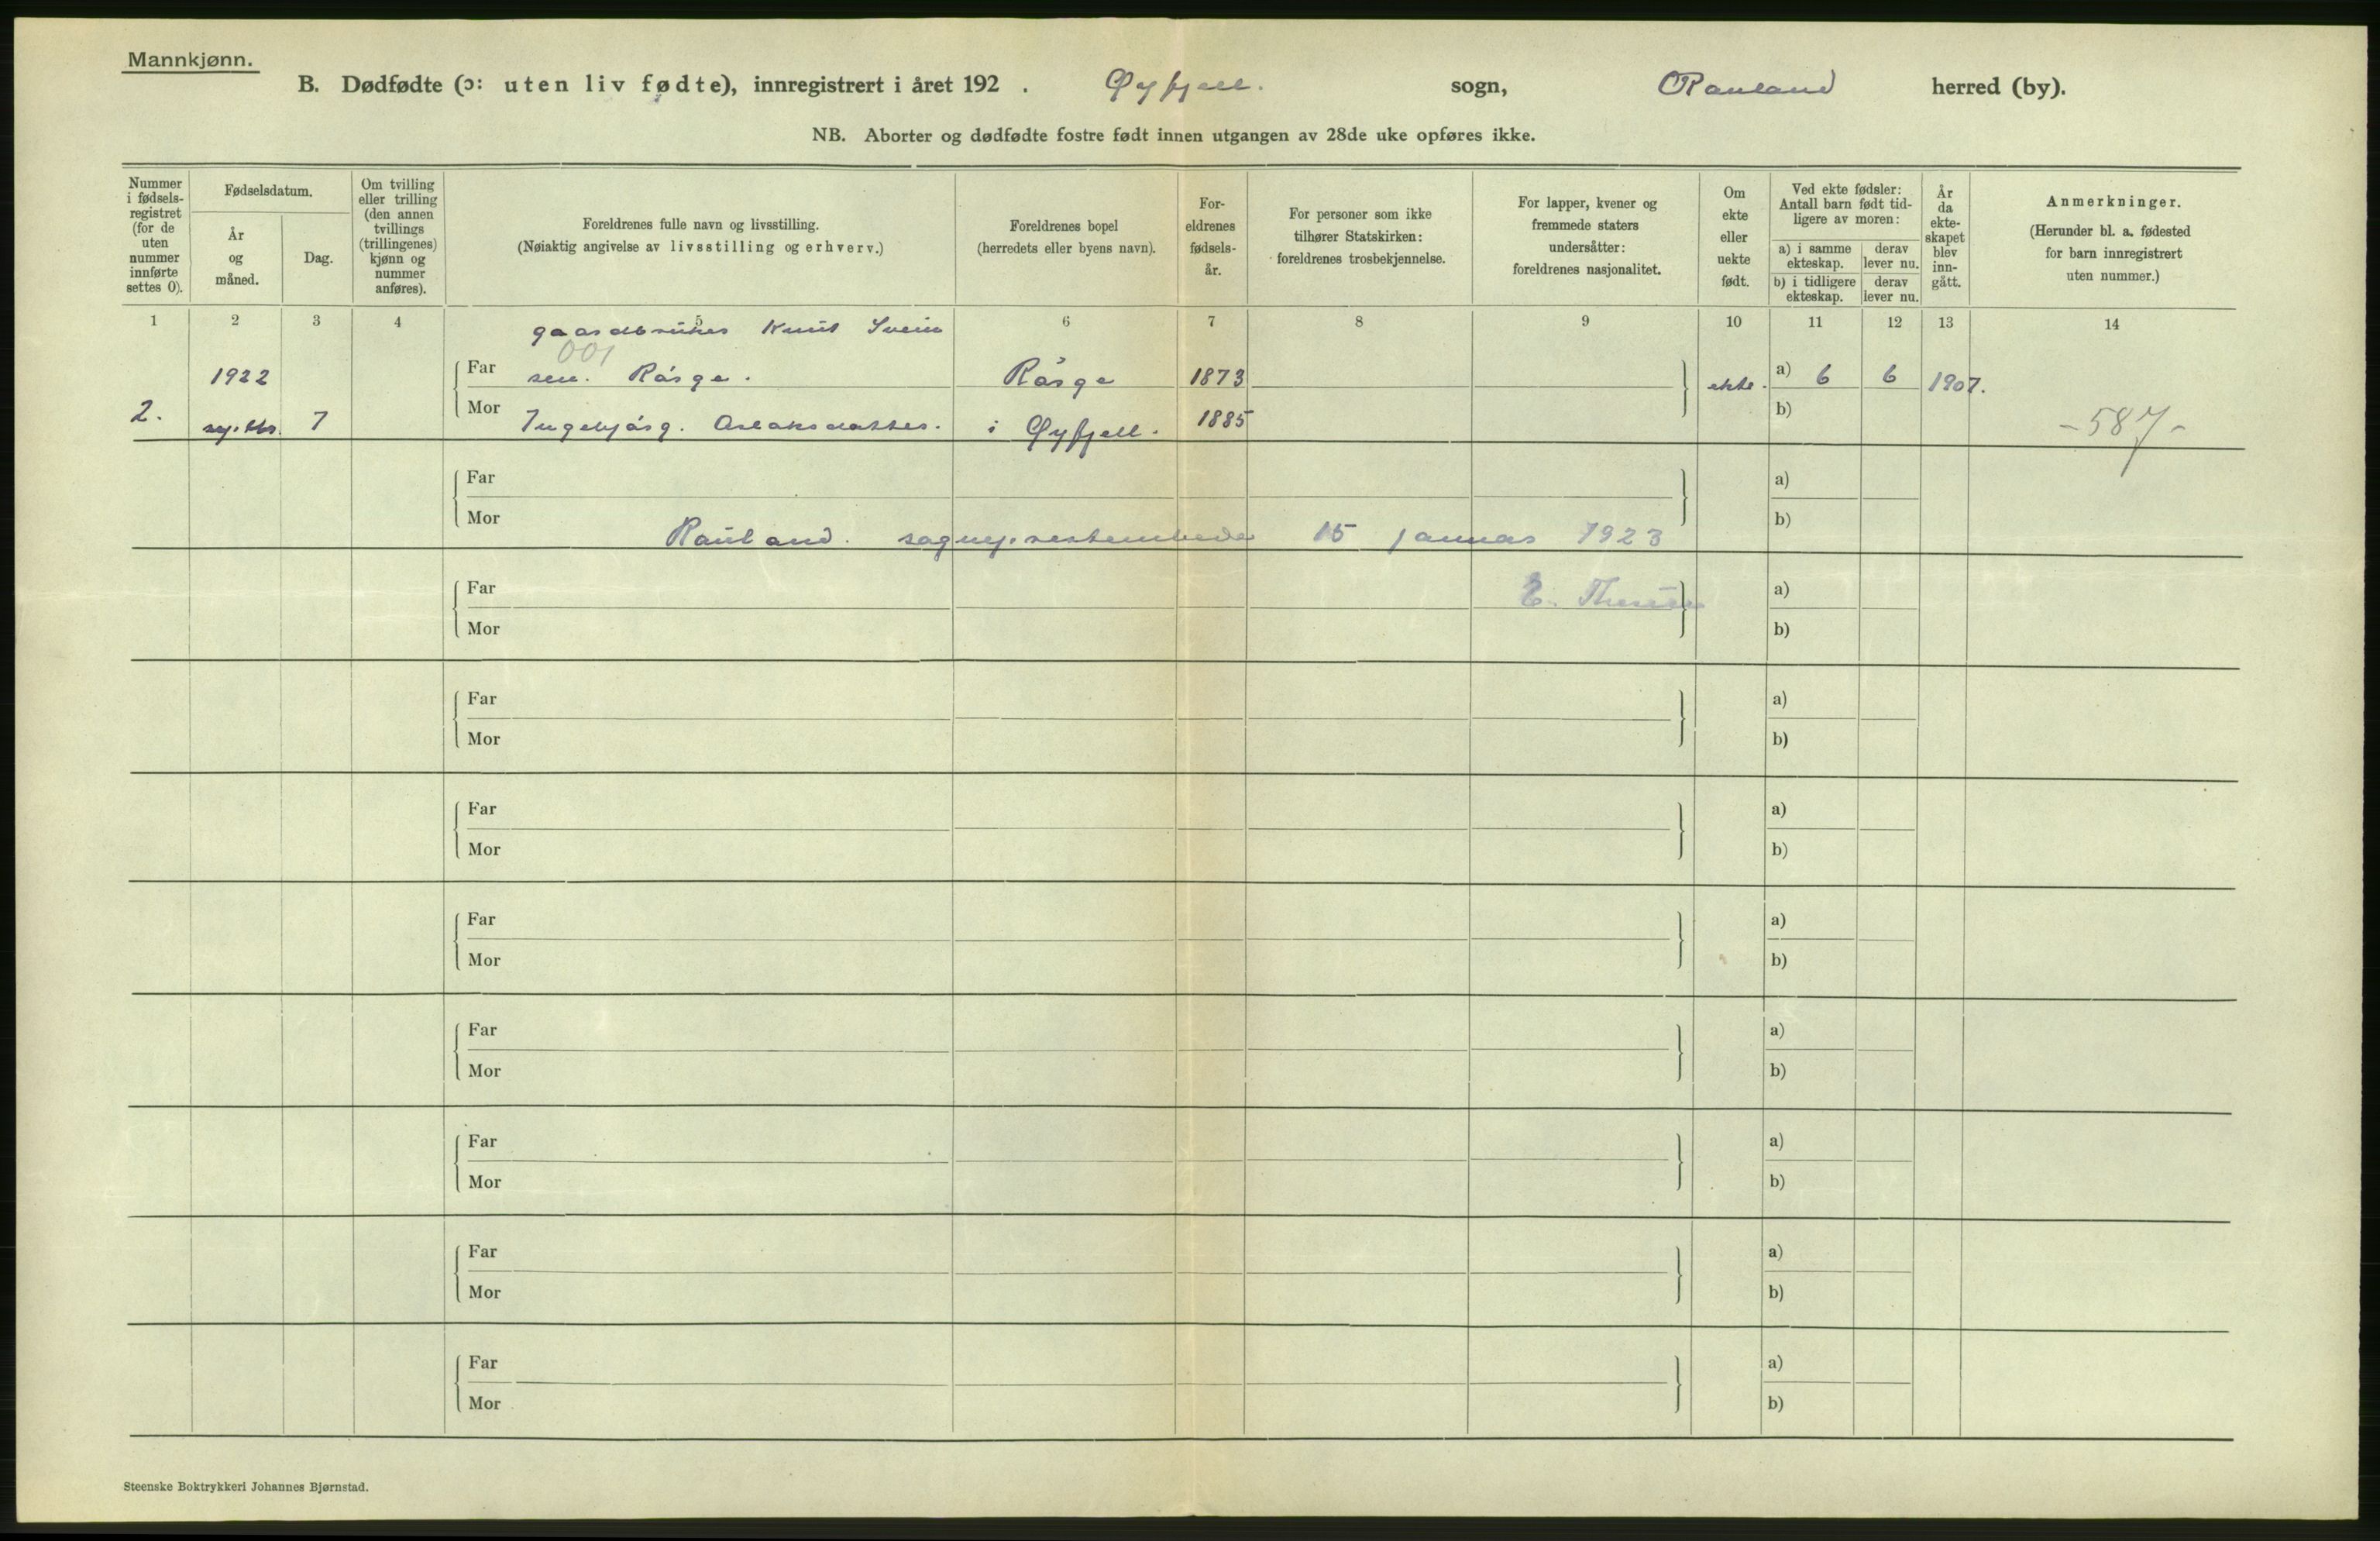 Mannkjønn.
B. Dødfødte (ɔ: uten liv fødte), innregistrert i året 192 . Øyfjell. sogn, Rauland herred (by).
NB. Aborter og dødfødte fostre født innen utgangen av 28de uke opføres ikke.
Nummer i fødsels- registret (for de uten nummer innførte settes 0).
Fødselsdatum.
År og måned.
Dag.
Om tvilling eller trilling (den annen tvillings (trillingenes) kjønn og nummer anføres).
Foreldrenes fulle navn og livsstilling.
(Nøiaktig angivelse av livsstilling og erhverv.)
Foreldrenes bopel
(herredets eller byens navn).
For- eldrenes fødsels- år.
For personer som ikke tilhører Statskirken: foreldrenes trosbekjennelse.
For lapper, kvener og fremmede staters undersåtter: foreldrenes nasjonalitet.
Om ekte eller uekte født.
Ved ekte fødsler: Antall barn født tid- ligere av moren:
a) i samme ekteskap.
derav lever nu.
b) i tidligere ekteskap.
derav lever nu.
År da ekte- skapet blev inn- gått.
Anmerkninger.
(Herunder bl. a. fødested for barn innregistrert uten nummer.)
1 2 3 4 5 6 7 8 9 10 11 12 13 14
gaardbruker Knut Svein
001
1922 Far sen. Råsge. Råsge 1873 ekte. a) 6 6 1907.
2. septbr. 7 Mor Ingebjørg. Aslaksdatter. i Øyfjell. 1885 b) -587-
Far a)
Mor b)
Rauland. sogneprestembede 15 januar 1923
Far E. a)
Mor b)
Far a)
Mor b)
Far a)
Mor b)
Far a)
Mor b)
Far a)
Mor b)
Far a)
Mor b)
Far a)
Mor b)
Far a)
Mor b)
Steenske Boktrykkeri Johannes Bjørnstad.